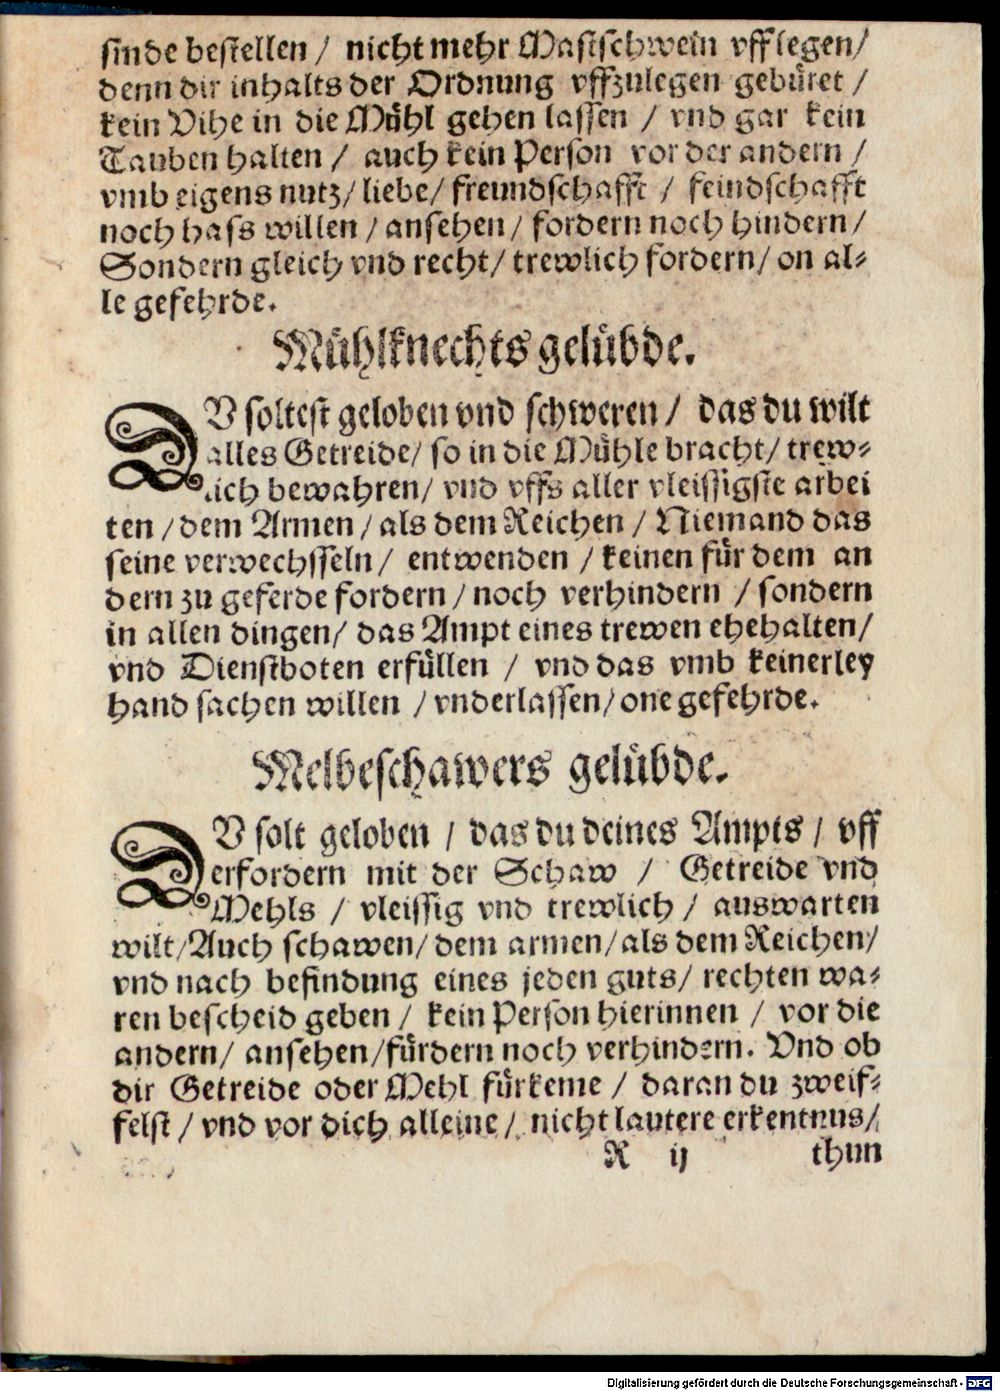 sinde bestellen / nicht mehr Mastschwein vfflegen/
denn dir inhalts der Ordnung vffzulegen gebüret /
kein Vihe in die Mühl gehen lassen / vnd gar kein
Tauben halten / auch kein Person vor der andern /
vmb eigens nutz/ liebe/ freundschafft / feindschafft
noch hass willen / ansehen / fordern noch hindern /
Sondern gleich vnd recht/ trewlich fordern/ on al-
le gefehrde.
Mühlknechts gelübde.
DV soltest geloben vnd schweren / das du wilt
alles Getreide/ so in die Mühle bracht/ trew-
lich bewahren/ vnd vffs aller vleissigste arbei
ten / dem Armen / als dem Reichen / Niemand das
seine verwechsseln / entwenden / keinen für dem an
dern zu geferde fordern / noch verhindern / sondern
in allen dingen/ das Ampt eines trewen ehehalten/
vnd Dienstboten erfüllen / vnd das vmb keinerley
hand sachen willen / vnderlassen/ one gefehrde.
Melbeschawers gelübde.
DV solt geloben / das du deines Ampts / vff
erfordern mit der Schaw / Getreide vnd
Mehls / vleissig vnd trewlich / auswarten
wilt/ Auch schawen/ dem armen/ als dem Reichen/
vnd nach befindung eines jeden guts/ rechten wa-
ren bescheid geben / kein Person hierinnen / vor die
andern/ ansehen/ fürdern noch verhindern. Vnd ob
dir Getreide oder Mehl fürkeme / daran du zweif-
felst / vnd vor dich alleine / nicht lautere erkentnus/
R ij thun
Digitalisierung gefördert durch die Deutsche Forschungsgemeinschaft - DFG